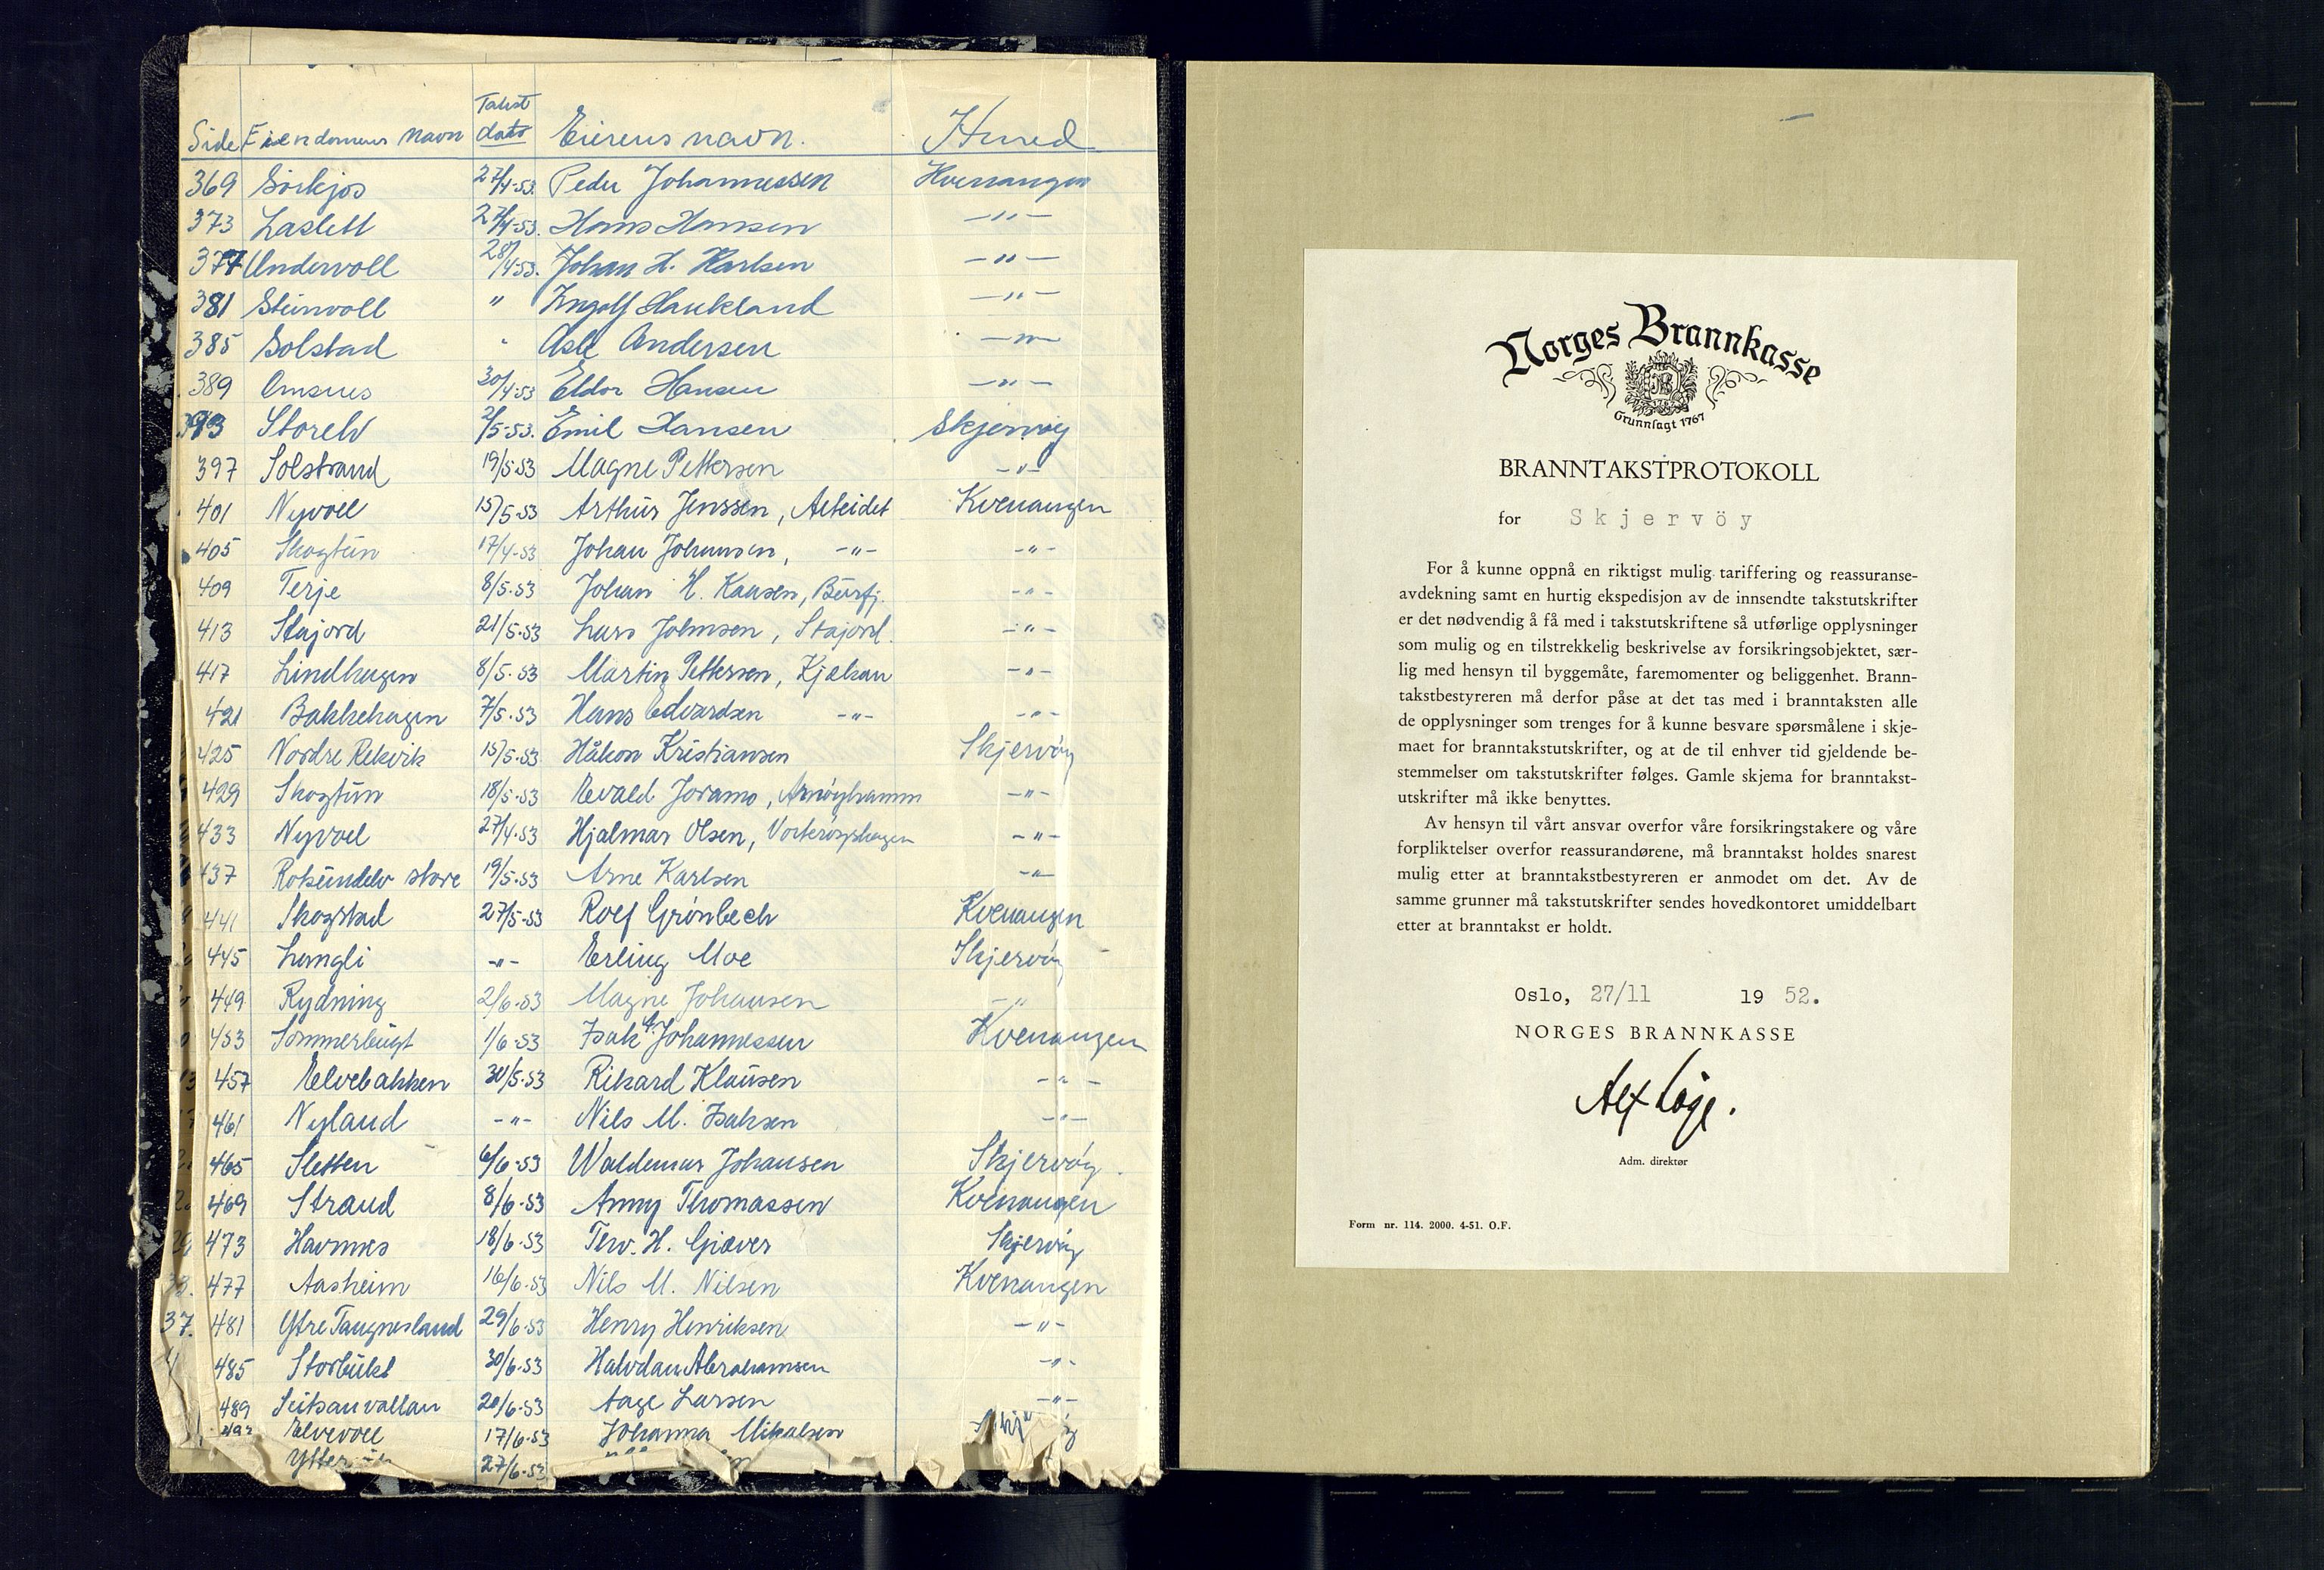 Side Eiendomens navn Takst dato Eierens navn. Hered
369 Sörkjos 27/4-53. Peder Johannessen Kvenangen
373 Laslett 27/4-53. Hans Hansen —"—
377 Undervoll 28/4-53. Johan H. Karlsen —"—
381 Steinvoll " Ingolf Haukland —"—
385 Solstad " Asle Andersen —"—
389 30/4-53 Eldor Hansen —"—
393 Storelv 2/5-53. Emil Hansen Skjervöy
397 Solstrand 19/5-53 Magne Pettersen —"—
401 Nyvoll 15/5-53 Arthur Jenssen, Alteidet Kvenangen
405 Skogtun 17/4-53 Johan Johansen, —"— —"—
409 Terje 8/5-53 Johan H. Kaasen, Burfj. —"—
413 Stajord 21/5-53 Lars Johnsen, Stajord. —"—
417 Lindhagen 8/5-53 Martin Pettersen, Kjækan —"—
421 Bakkehagen 7/5-53 Hans Edvardsen —"— —"—
425 Nordre Rekvik 15/5-53 Håkon Kristiansen Skjervöy
429 Skogtun 18/5-53 Evald Joramo, Arnöyhamn —"—
433 Nyvoll 27/4-53 Hjalmar Olsen, Vorteröyskagen —"—
437 Roksundelv store 19/5-53 Arne Karlsen —"—
441 Skogstad 27/5-53 Rolf Grönbech Kvenangen
445 Langli —"— Erling Moe Skjervöy
449 Rydning 2/6-53 Magne Johansen —"—
453 Sommerbugt 1/6-53 Isak Johannessen Kvenangen
457 Elvebakken 30/5-53 Rikard Klausen —"—
461 Nyland —"— Nils M. Isaksen —"—
465 Sletten 6/6-53 Waldemar Johansen Skjervöy.
469 Strand 8/6-53 Anny Thomassen Kvenangen
473 Havnnes 18/6-53 Thv. H. Giæver Skjervöy
477 Aasheim 16/6-53 Nils M. Nilsen Kvenangen
37. 481 Ytre Taugnesland 29/6-53 Henry Henriksen —"—
485 Storbukt 30/6-53 Halvdan Abrahamsen —"—
489 Seitsanvallan 20/6-53 Aage Larsen —"—
Elvevoll 17/6-53 Johanna Mikalsen
27/6-53
Norges Brannkasse
Grunnlagt 1767
BRANNTAKSTPROTOKOLL
for Skjervöy
For å kunne oppnå en riktigst mulig tariffering og reassuranse-
avdekning samt en hurtig ekspedisjon av de innsendte takstutskrifter
er det nødvendig å få med i takstutskriftene så utførlige opplysninger
som mulig og en tilstrekkelig beskrivelse av forsikringsobjektet, sær-
lig med hensyn til byggemåte, faremomenter og beliggenhet. Brann-
takstbestyreren må derfor påse at det tas med i branntaksten alle
de opplysninger som trenges for å kunne besvare spørsmålene i skje-
maet for branntakstutskrifter, og at de til enhver tid gjeldende be-
stemmelser om takstutskrifter følges. Gamle skjema for branntakst-
utskrifter må ikke benyttes.
Av hensyn til vårt ansvar overfor våre forsikringstakere og våre
forpliktelser overfor reassurandørene, må branntakst holdes snarest
mulig etter at branntakstbestyreren er anmodet om det. Av de
samme grunner må takstutskrifter sendes hovedkontoret umiddelbart
etter at branntakst er holdt.
Oslo, 27/11 19 52.
NORGES BRANNKASSE
Adm. direktør
Form nr. 114. 2000. 4-51. O.F.